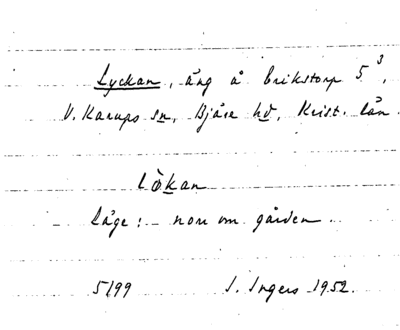 Lyckan, äng å Erikstorp 5³,
V. Karups sn, Bjäre hd, Krist. län.
lø̀kan
Läge: norr om gården.
5199 I. Ingers 1952.